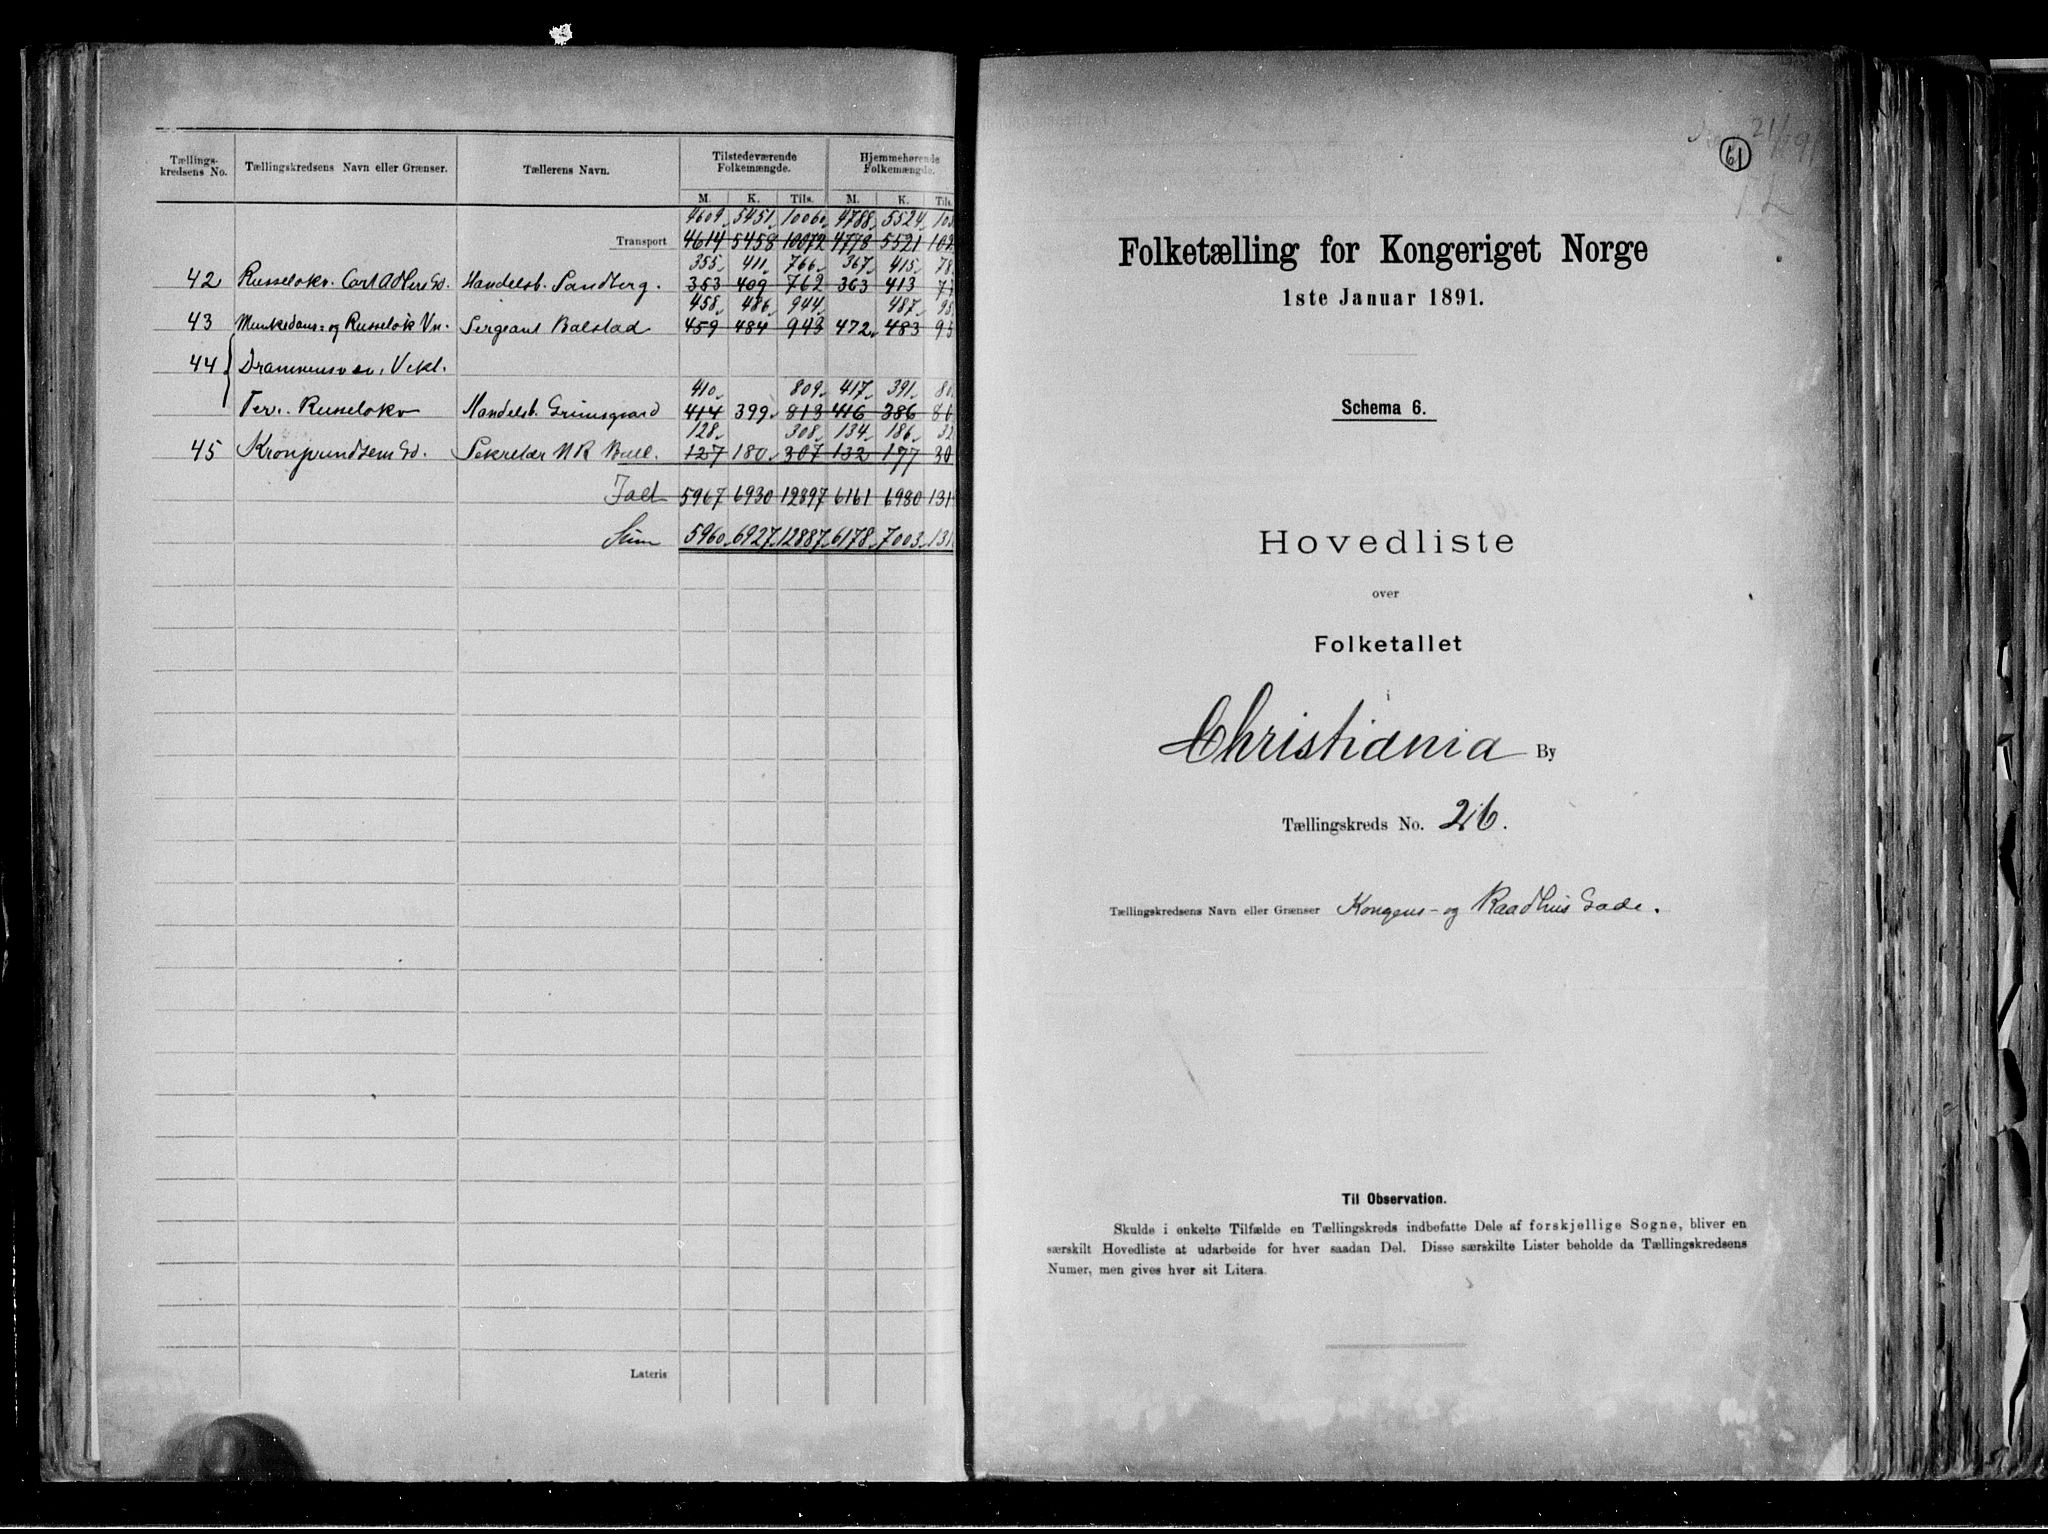 Tællings-kredsens No. Tællingskredsens Navn eller Grænser. Tællerens Navn. Tilstedeværende Folkemængde. Hjemmehørende Folkemængde.
M. K. Tils. M. K. Tils.
4609 5451 10060 4788 5524
Transport 4614 5458 10072 4778 5521 102
355 411 766 367 415 78
42 Russeløkv. Carl Adlers Gd. Handelsb. Sandberg. 353 409 762 363 413
458 486 944 487
43 Munkedams- og Russeløk Vn. Sergeant Balstad 459 484 943 472 483
44 Drammensvn. Vikt.
410 809 417 391 80
Ter. Russeløkv Handelsb. Grimsgaard 414 399 813 416 386
128 308 134 186 32
45 Kronprindsens Gd. Sekretær N R Bull. 127 180 307 132 177 30
Ialt 5967 6930 12897 6161 6980 131
Sum 5960 6927 12887 6178 7003 131
Lateris
21/
61
12
Folketælling for Kongeriget Norge
1ste Januar 1891.
Schema 6.
Hovedliste
over
Folketallet
i
Christiania By
Tællingskreds No. 26.
Tællingskredsens Navn eller Grænser Kongens- og Raadhus Gade.
Til Observation.
Skulde i enkelte Tilfælde en Tællingskreds indbefatte Dele af forskjellige Sogne, bliver en
særskilt Hovedliste at udarbeide for hver saadan Del. Disse særskilte Lister beholde da Tællingskredsens
Numer, men gives hver sit Litera.